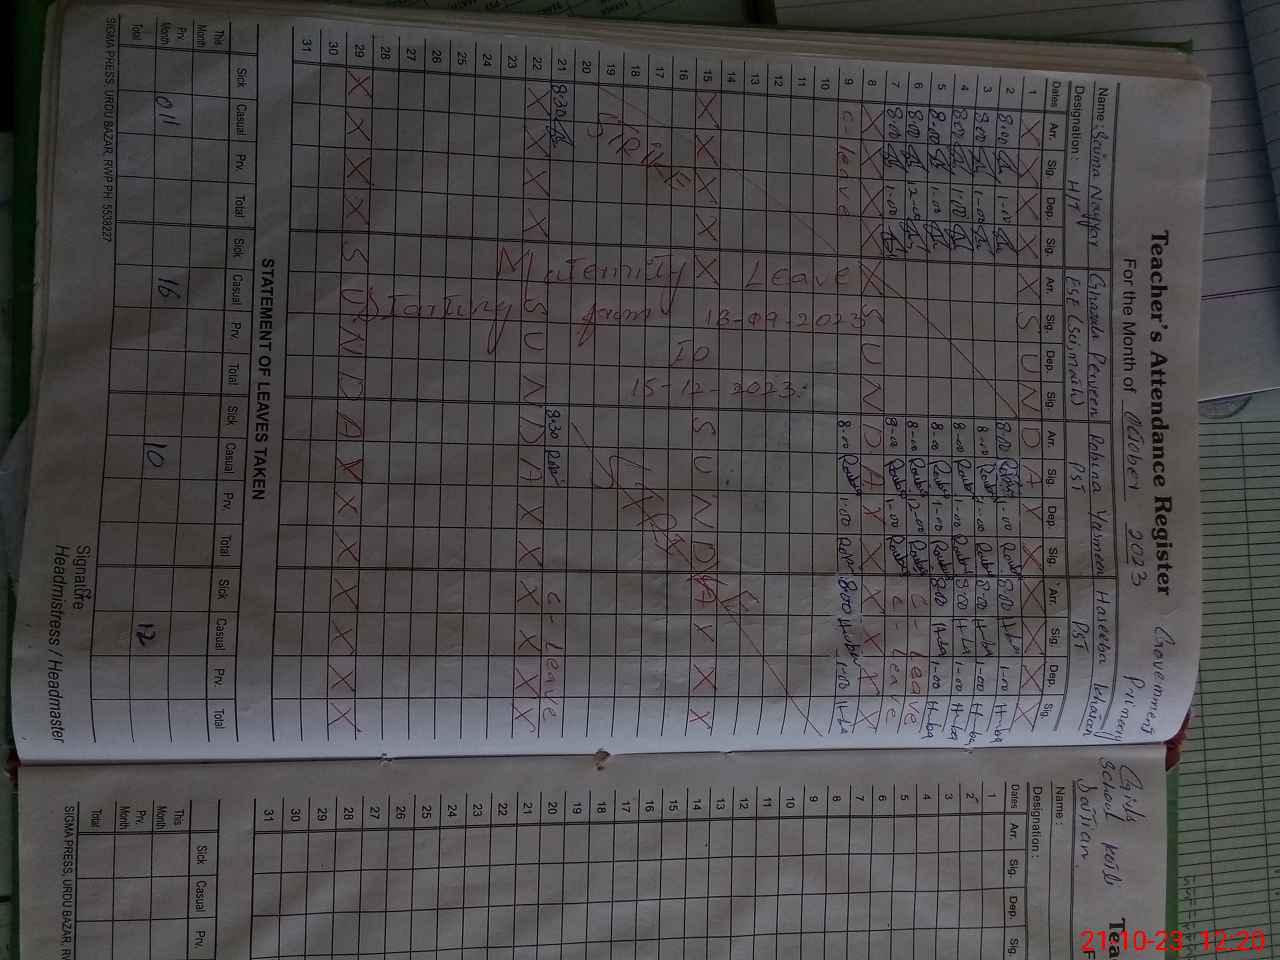 Teacher's Attendance Register
Government
Primary
For the Month of October 2023
Name: Seima Nayyar Ghazala Perveen Robina Yasmeen Haseeba Khatoon
Designation: H/T ESE (Sci, math) PST PST
Dates Arr. Sig. Dep. Sig. Arr. Sig. Dep. Sig. Arr. Sig. Dep. Sig. Arr. Sig. Dep. Sig.
1 X X X X X S U N D A Y X X X X
2 8:00 1-00 8:00 1-00 8:00 1-00
3 8:00 1-00 8-00 1-00 8:00 1-00
4 8:00 1:00 8-00 1-00 8:00 1-00
5 8:00 1-00 8-00 1-00 8:00 1-00
6 8:00 12-00 8-00 12-00 C Leave
7 8:00 1-00 8-00 1-00 C - Leave
8 X X X X X S U N D A Y X X X X X
9 C - leave Leave 13-09-2023 8:00 1:00 8:00 1-00
10
11
12
13
14
15 X X X X X S U N D A Y X X
16
17
18
19
20
STRIKE
STRIKE
Maternity Leave
Starting from 13-09-2023
To
15-12-2023
21 8:30 8:30 C - Leave
22 X X X X S U N D A X X X X X
23
24
25
26
27
28
29 X X X X S U N D A Y X X X X X X
30
31
STATEMENT OF LEAVES TAKEN
Sick Casual Prv. Total Sick Casual Prv. Total Sick Casual Prv. Total Sick Casual Prv. Total
This Month
Prv. Month 011 16 10 12
Total
Signature
Headmistress / Headmaster
SIGMA PRESS, URDU BAZAR, RWP PH: 5538227
Girls
School Kotli
Tea
F
Name :
Designation :
Dates Arr. Sig. Dep. Sig.
1
2
3
4
5
6
7
8
9
10
11
12
13
14
15
16
17
18
19
20
21
22
23
24
25
26
27
28
29
30
31
Sick Casual Prv.
This Month
Prv. Month
Total
SIGMA PRESS, URDU BAZAR, RW
21-10-23 12:20